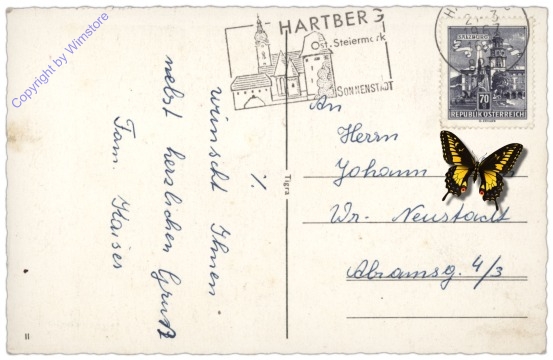 Copyright by Wimstore
HARTBERG
Ost-Steiermark
SONNENSTADT
SALZBURG
70
REPUBLIK ÖSTERREICH
wünscht Ihnen
nebst herzlichen Gruß
Fam. Kaiser
Tigra
An
Herrn
Johann
Wr. Neustadt
Abramsg. 4/3